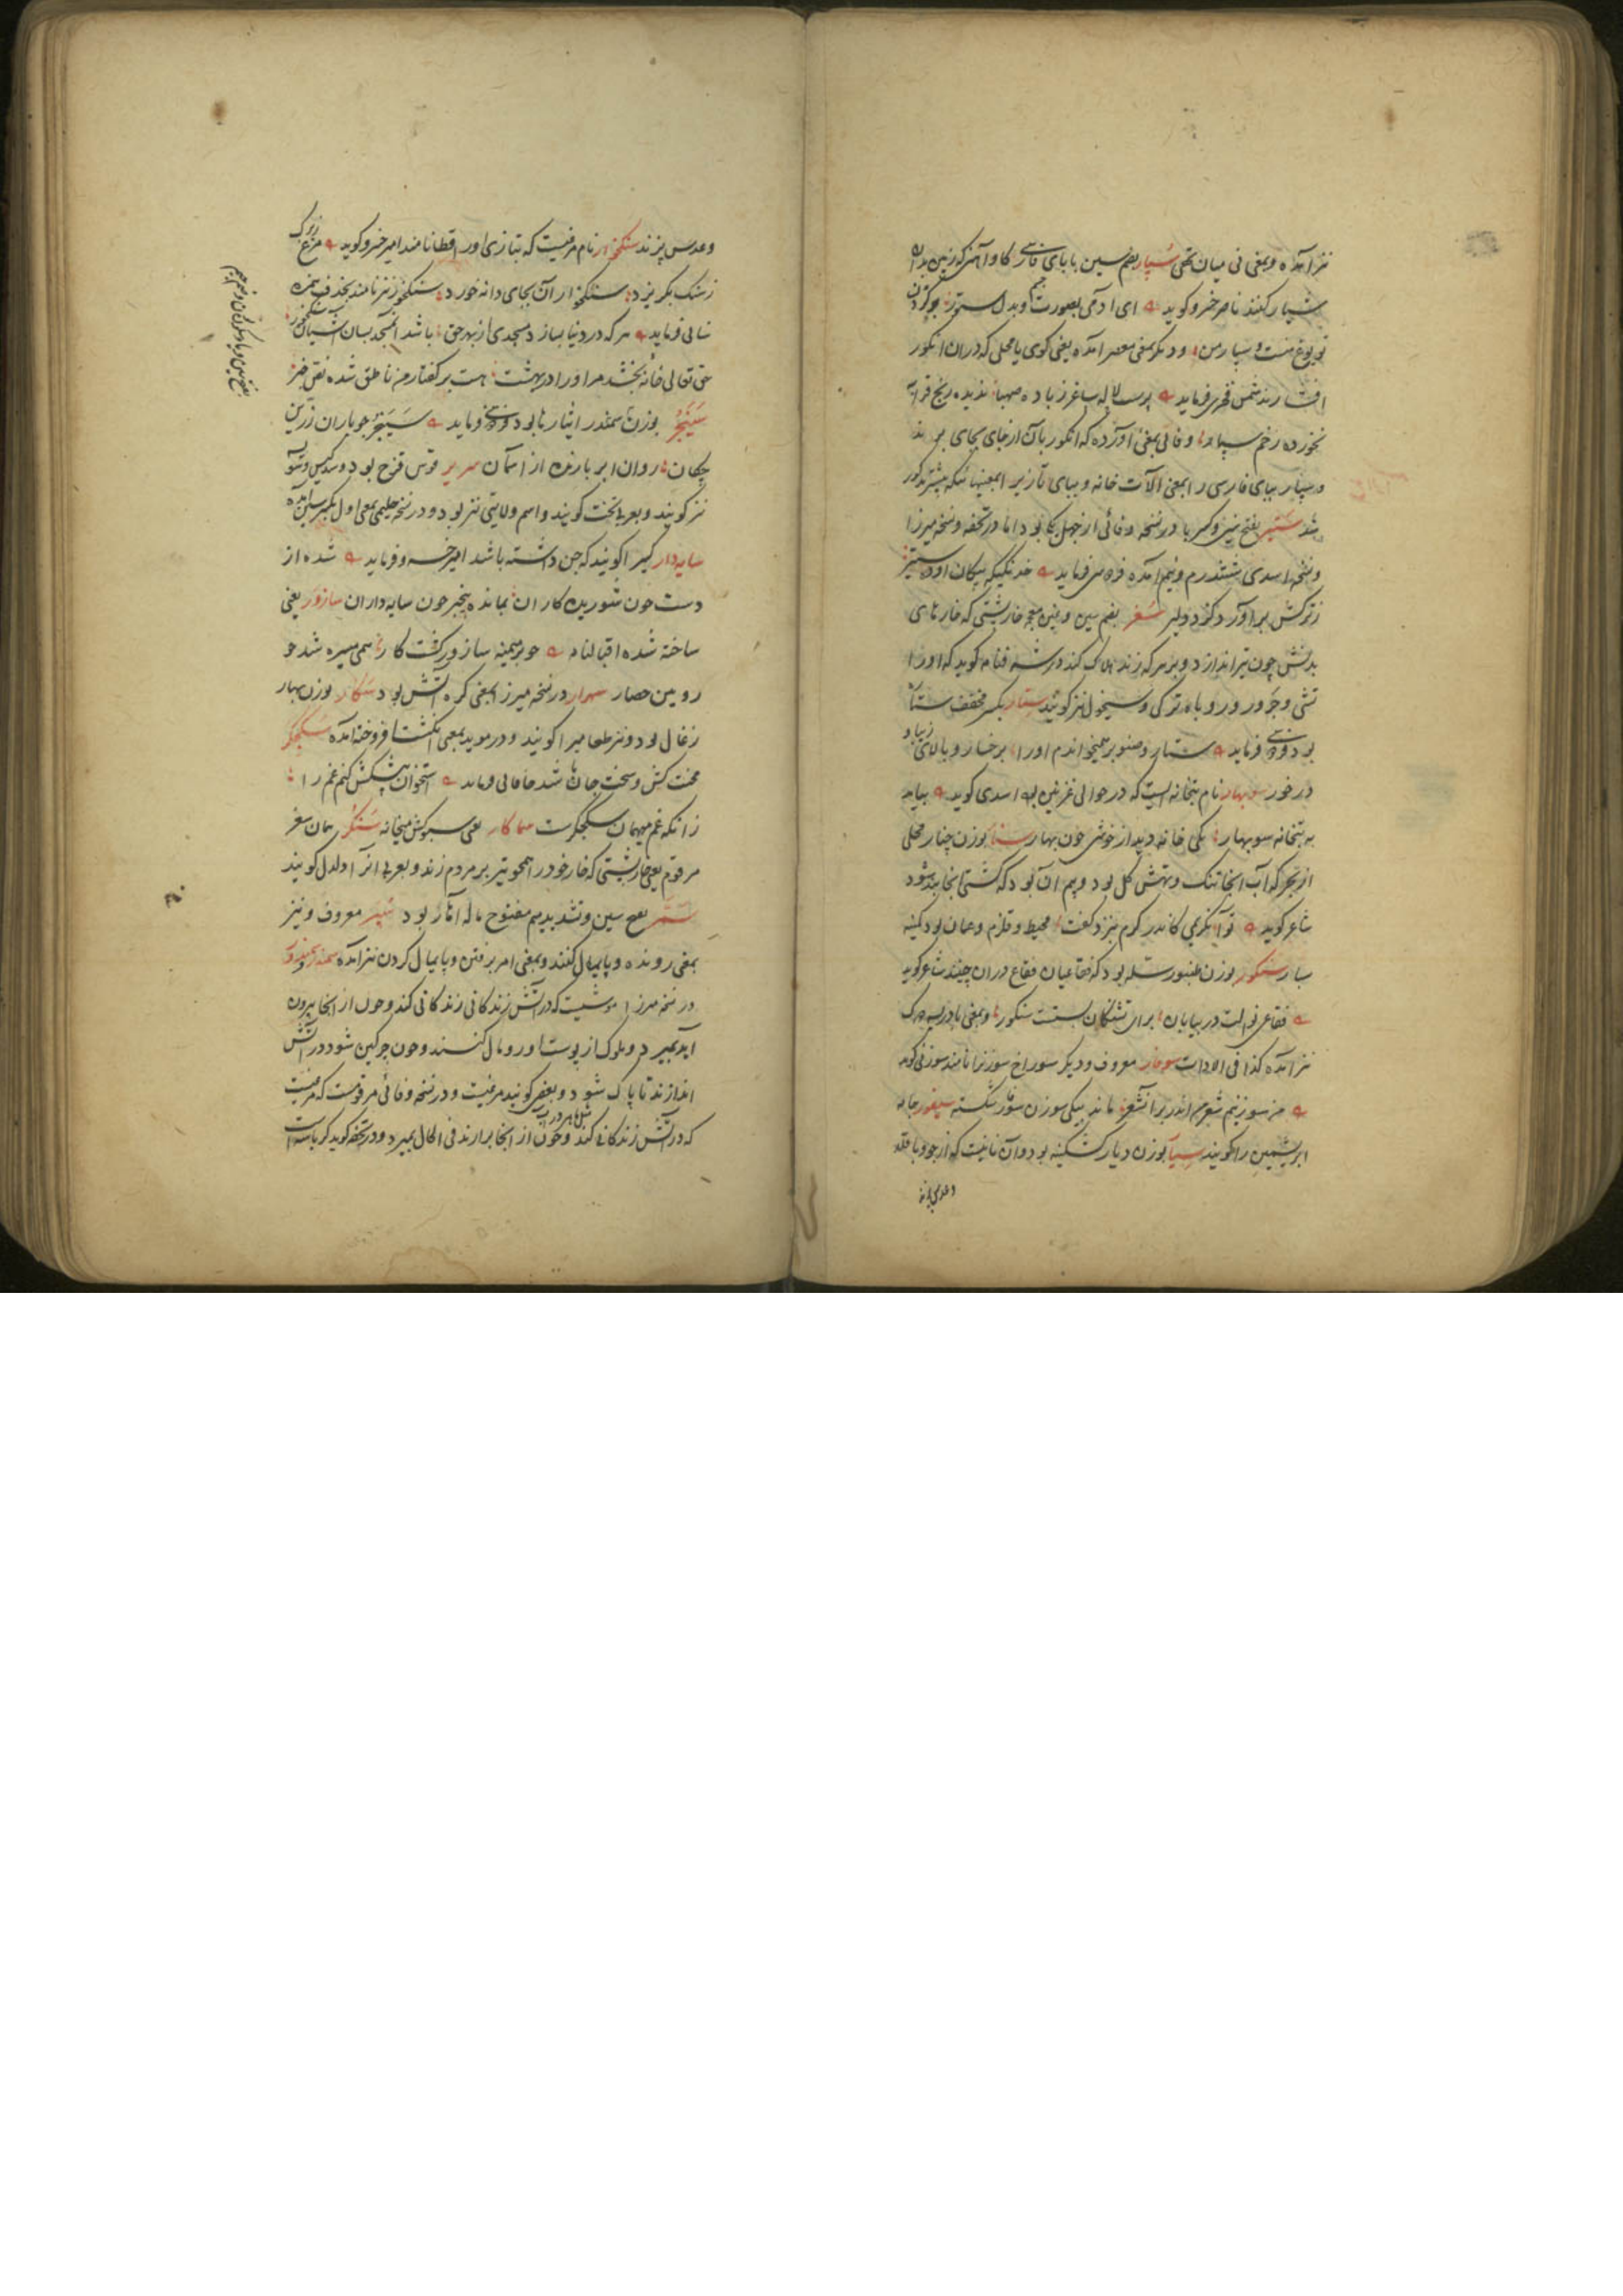 نیز آمده و بمعنی نی میان تهی سُپار بضم سین با بای فارسی گاو آهن که زمین بدان
شیار کنند ناصر خسرو گوید ای آدمی بصورت و بدل ستور
تو یوغ منت و سپار من و دیگر بمعنی معصر آمده یعنی کوی یا محلی که در آن انگور
افشارند شمس فخری فرماید پرست لاله ساغر ز باده صهبا ندیده رنج
نخورده زخم سپار و فائی بمعنی آورده که انگور بآن از جای بجای برند
و سپار ببای فارسی را بمعنی آلات خانه و ببای تازی بر
شد ستیر بفتح سین و کسر با در نسخه وفائی از چهل یکی بود اما در تحفه و نسخه میرزا
و نسخه اسدی شش درم و نیم آمده فردوسی فرماید خدنگی که پیکان او ده ستیر
ز ترکش برآورد گرد دلیر سُغر بضم سین و غین معجمه خارپشتی که خارهای
بدنش چون تیر اندازد و بر هر که زند هلاک کند در شرفنامه گوید که او را
تشی و جزور و روباه ترکی و سیخول نیز گویند ستار بکسر مخفف ستاره
بود فردوسی فرماید ستار و صنوبر همیخواندم او را برخسار و بالای زیبا و
در خور سوبهار نام بتخانه ایست که در حوالی غزنین بود اسدی گوید بیامد
به بتخانه سوبهار یکی خانه دید از خوشی چون بهار سنار بوزن چنار محلی
از بحر که آب آنجا تنک و تهش گل بود و بیم آن بود که کشتی آنجا بند شود
شاعر گوید تو آن کریمی کاندر کرم نیرزد کفت محیط و قلزم و عمان بود کمینه
سنار سنگور بوزن طنبور سله بود که فقاعیان فقاع در آن چینند شاعر گوید
فقاعی نو الت در بیابان برای تشنگان بستت سنگور و بمعنی بادریسه دوک
نیز آمده کذا فی الادات سوفار معروف و دیگر سوراخ سوزن را نامند سوزنی گوید
من سوزنیم شعر من اندر بر آن شعر ماند بیکی سوزن سوفار شکسته سیفور جامه
ابریشمین را گویند سپار بوزن دیار کشکینه بود و آن نانیست که از جو و باقله
و عدس پزند
و عدس پزند سنگخوار نام مرغیست که بتازی او را قطا نامند امیر خسرو گوید مرغ زیرک
ز سنگ بگریزد سنگخوار آن بجای دانه خورد سنگخور نیز نامند بحذف همزه
سنائی فرماید هر که در دنیا بسازد مسجدی از بهر حق باشد آن مسجد بسان آشیان سنگخور
حق تعالی خانه بخشد مر او را در بهشت هست بر گفتار من ناطق شده نص خبر
سَیَنجُر بوزن سمندر ایثارها بود فردوسی فرماید سَیَنجُر چو باران زرین
چکان روان ابر بارنده از آسمان سریر قوس قزح بود و سدکیس و
نیز گویند و بعربی تخت گویند و اسم ولایتی نیز بود و در نسخه حلیمی بمعنی اول بکسر سین آمده
سایه دار کسی را گویند که جن داشته باشد امیر خسرو فرماید شده از
دست چون شوریده کاران بمانده بیخبر چون سایه داران سازور یعنی
ساخته شده اقبالنامه چو بر میمنه سازور گشت کار همی میسره شد چو
رویین حصار سهرار در نسخه میرزا بمعنی کره آتش بود سکار بوزن بهار
زغال بود و نیز طعامی را گویند و در موید بمعنی انگشت افروخته آمده سنگجگر
محنت کش و سخت جان باشد خاقانی فرماید استخوان پیشکش کنم غم را
زانکه غم میهمان سنگجگرست سماکار یعنی سبوکش میخانه سَنگُر همان سغر
مرقوم یعنی خارپشتی که خار خود را همچو تیر بر مردم زند و بعربی آنرا دلدل گویند
سَمَّر بفتح سین و تشدید میم مفتوح ماله آثار بود سپر معروف و نیز
بمعنی رونده و پایمال کنند و بمعنی امر برفتن و پایمال کردن نیز آمده سمندر
در نسخه میرزا موشیست که در آتش زندگانی زندگانی کند و چون از آنجا بیرون
آید بمیرد و ملوک از پوست او رومال کنند و چون چرکین شود در آتش
اندازند تا پاک شود و بعضی گویند مرغیست و در نسخه وفائی مرقومست که مرغیست
که در آتش زندگانی کند و چون از آنجا برآرند فی الحال بمیرد و در تحفه گوید که